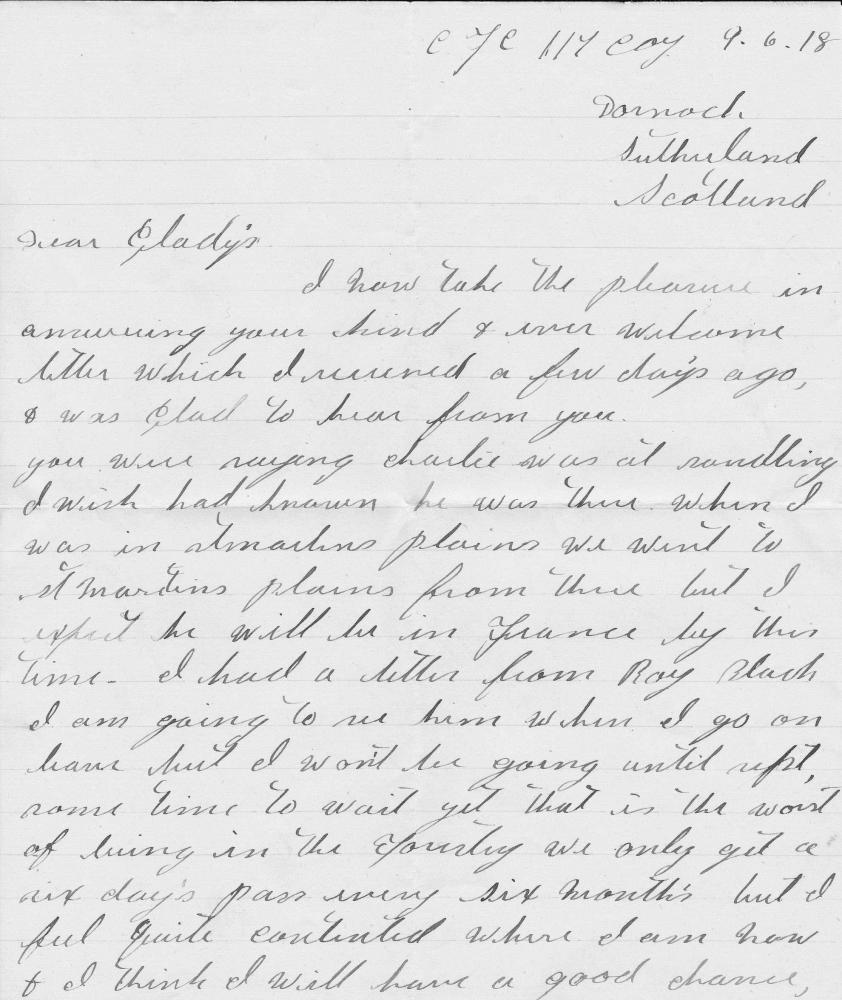 C F C 117 Coy 9.6.18
Dornoch.
Sutherland
Scotland
Dear Glady's
I now take the pleasure in
answering your kind & ever welcome
letter which I received a few day's ago,
& was Glad to hear from you.
you were saying charlie was at sandling
I wish had known he was there when I
was in st martins plains we went to
st martins plains from there but I
expect he will be in France by this
time - I had a letter from Roy Black
I am going to see him when I go on
leave but I won't be going until sept,
some time to wait yet that is the worst
of being in the Forestry we only get a
six day's pass every six month's but I
feel quite contented where I am now
& I think I will have a good chance,